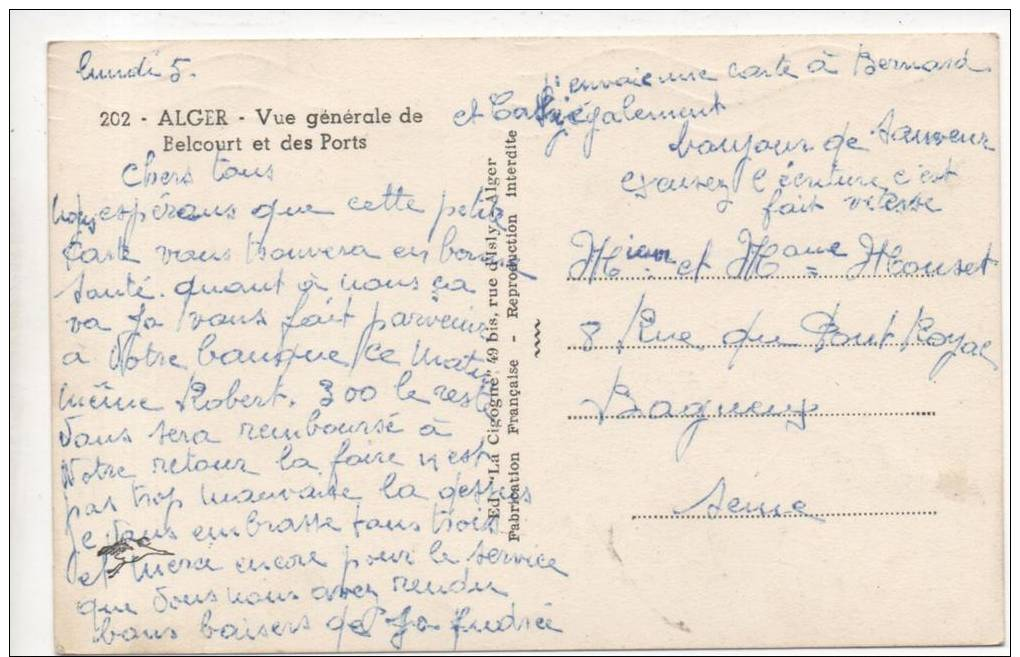 lundi 5.
202 - ALGER - Vue générale de
Belcourt et des Ports
Chers tous
nous espérons que cette petite
carte vous trouvera en bonne
santé. quant à nous ça
va Jo vous fait parvenir
a votre banque ce matin
même Robert. 300 le reste
vous sera remboursé à
votre retour la foire n'est
pas trop mauvaise la dessus
je vous embrasse tous trois
et merci encore pour le service
que vous nous avez rendu
bons baisers de Jo Andrée
Ed. "La Cigogne" 49 bis, rue d'Isly - Alger
Fabrication Française - Reproduction interdite
j'envoie une carte à Bernard
et également
bonjour de Sauveur
excusez l'écriture c'est
fait vitesse
Mr et Mme Mouset
8 Rue du Pont Royal
Bagneux
Seine